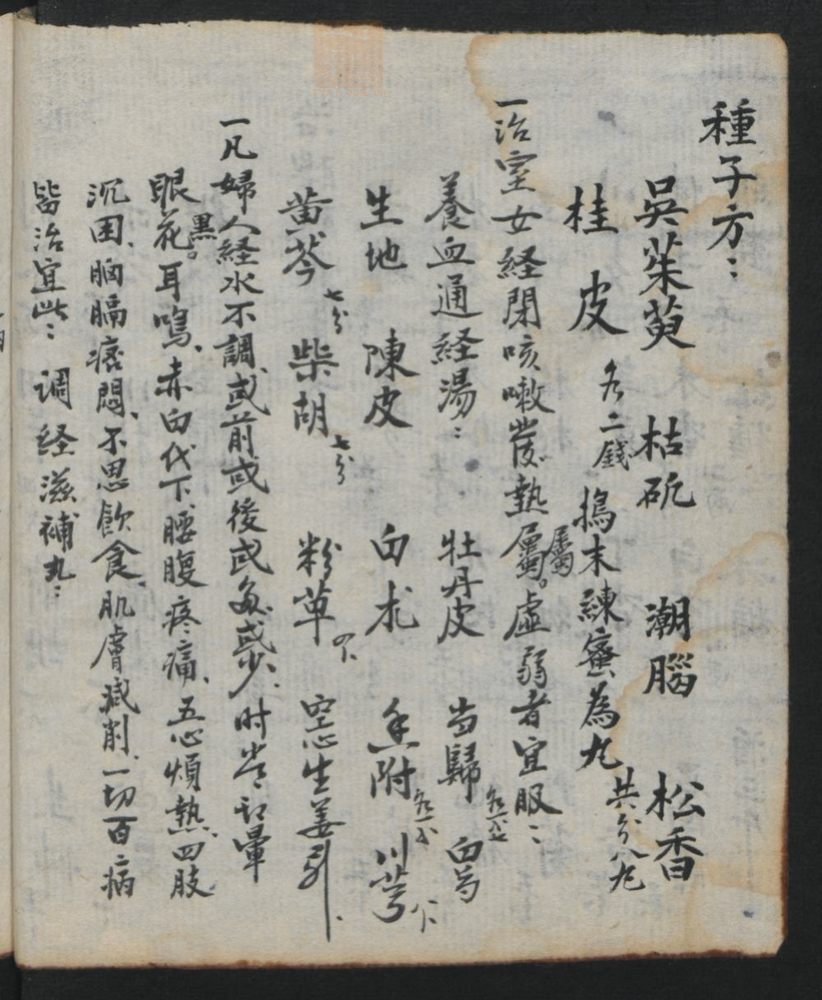 種子方：
吳茱萸 枯矾 潮腦 松香
桂皮 各二錢 搗末練蜜為丸 共分八丸
一治室女経閉咳嗽發熱屬屬虛弱者宜服：
養血通経湯： 牡丹皮 当歸 白芍
生地 陳皮 白朮 香附 川芎
黄芩 七分 柴胡 七分 粉草 空心生姜引、
一凡婦人経水不調、或前或後或多或少、时常头暈
眼花黑。耳鳴、赤白代下、腰腹疼痛、五心煩熱、四肢
沉困、胸膈痞悶、不思飲食、肌膚减削、一切百病
皆治宜此：調経滋補丸：